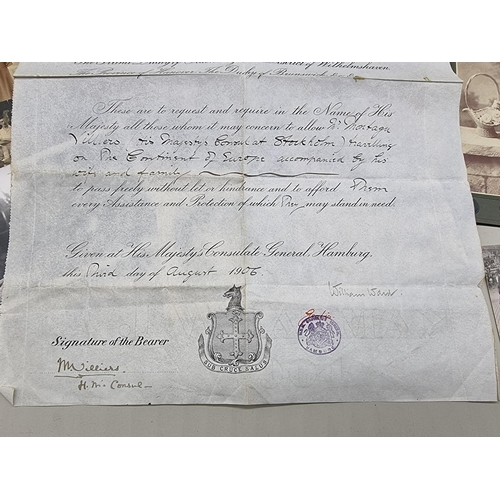 of Wilhelmshaven.
The Province of Hanover The Duchy of Brunswick
These are to request and require in the Name of His
Majesty all those whom it may concern to allow Mr Montagu
Villiers His Majesty's Consul at Stockholm) travelling
on The Continent of Europe accompanied by his
wife and family
to pass freely without let or hindrance and to afford Them
every Assistance and Protection of which They may stand in need.
Given at His Majesty's Consulate General, Hamburg.
this Third day of August 1906.
William Ward
Signature of the Bearer
MVilliers
H.M. Consul
SUB CRUCE SALUS
HAMBURG